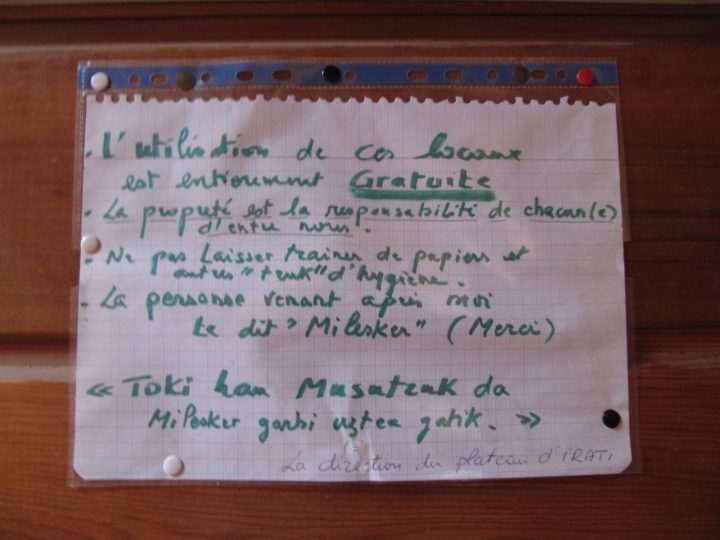 • L'utilisation de ces locaux
est entièrement Gratuite
• La propreté est la responsabilité de chacun(e)
d'entre nous.
• Ne pas Laisser trainer de papiers et
autres "truk" d'hygiène.
• La personne venant après moi
te dit "Milesker" (Merci)
« Toki hau Musutruk da
Milesker garbi uztea gatik. »
La direction du plateau d'IRATI